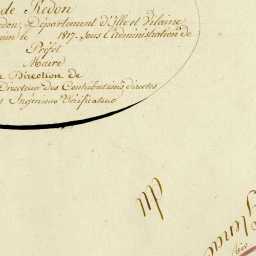 de Redon
don, Département d'Ille et Vilaine
le 1817. Sous l'administration de
Préfet
Maire
Direction de
Directeur des Contributions directes
Ingénieur Vérificateur
du